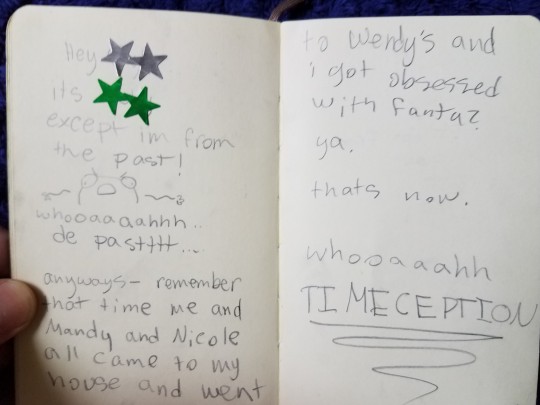 Hey
its
except im from
the past!
whooaaaahhh..
de pasttt...
anyways- remember
that time me and
Mandy and Nicole
all came to my
house and went
to Wendy's and
i got obsessed
with fanta?
ya.
thats now.
whooaaaahh
TIMECEPTION